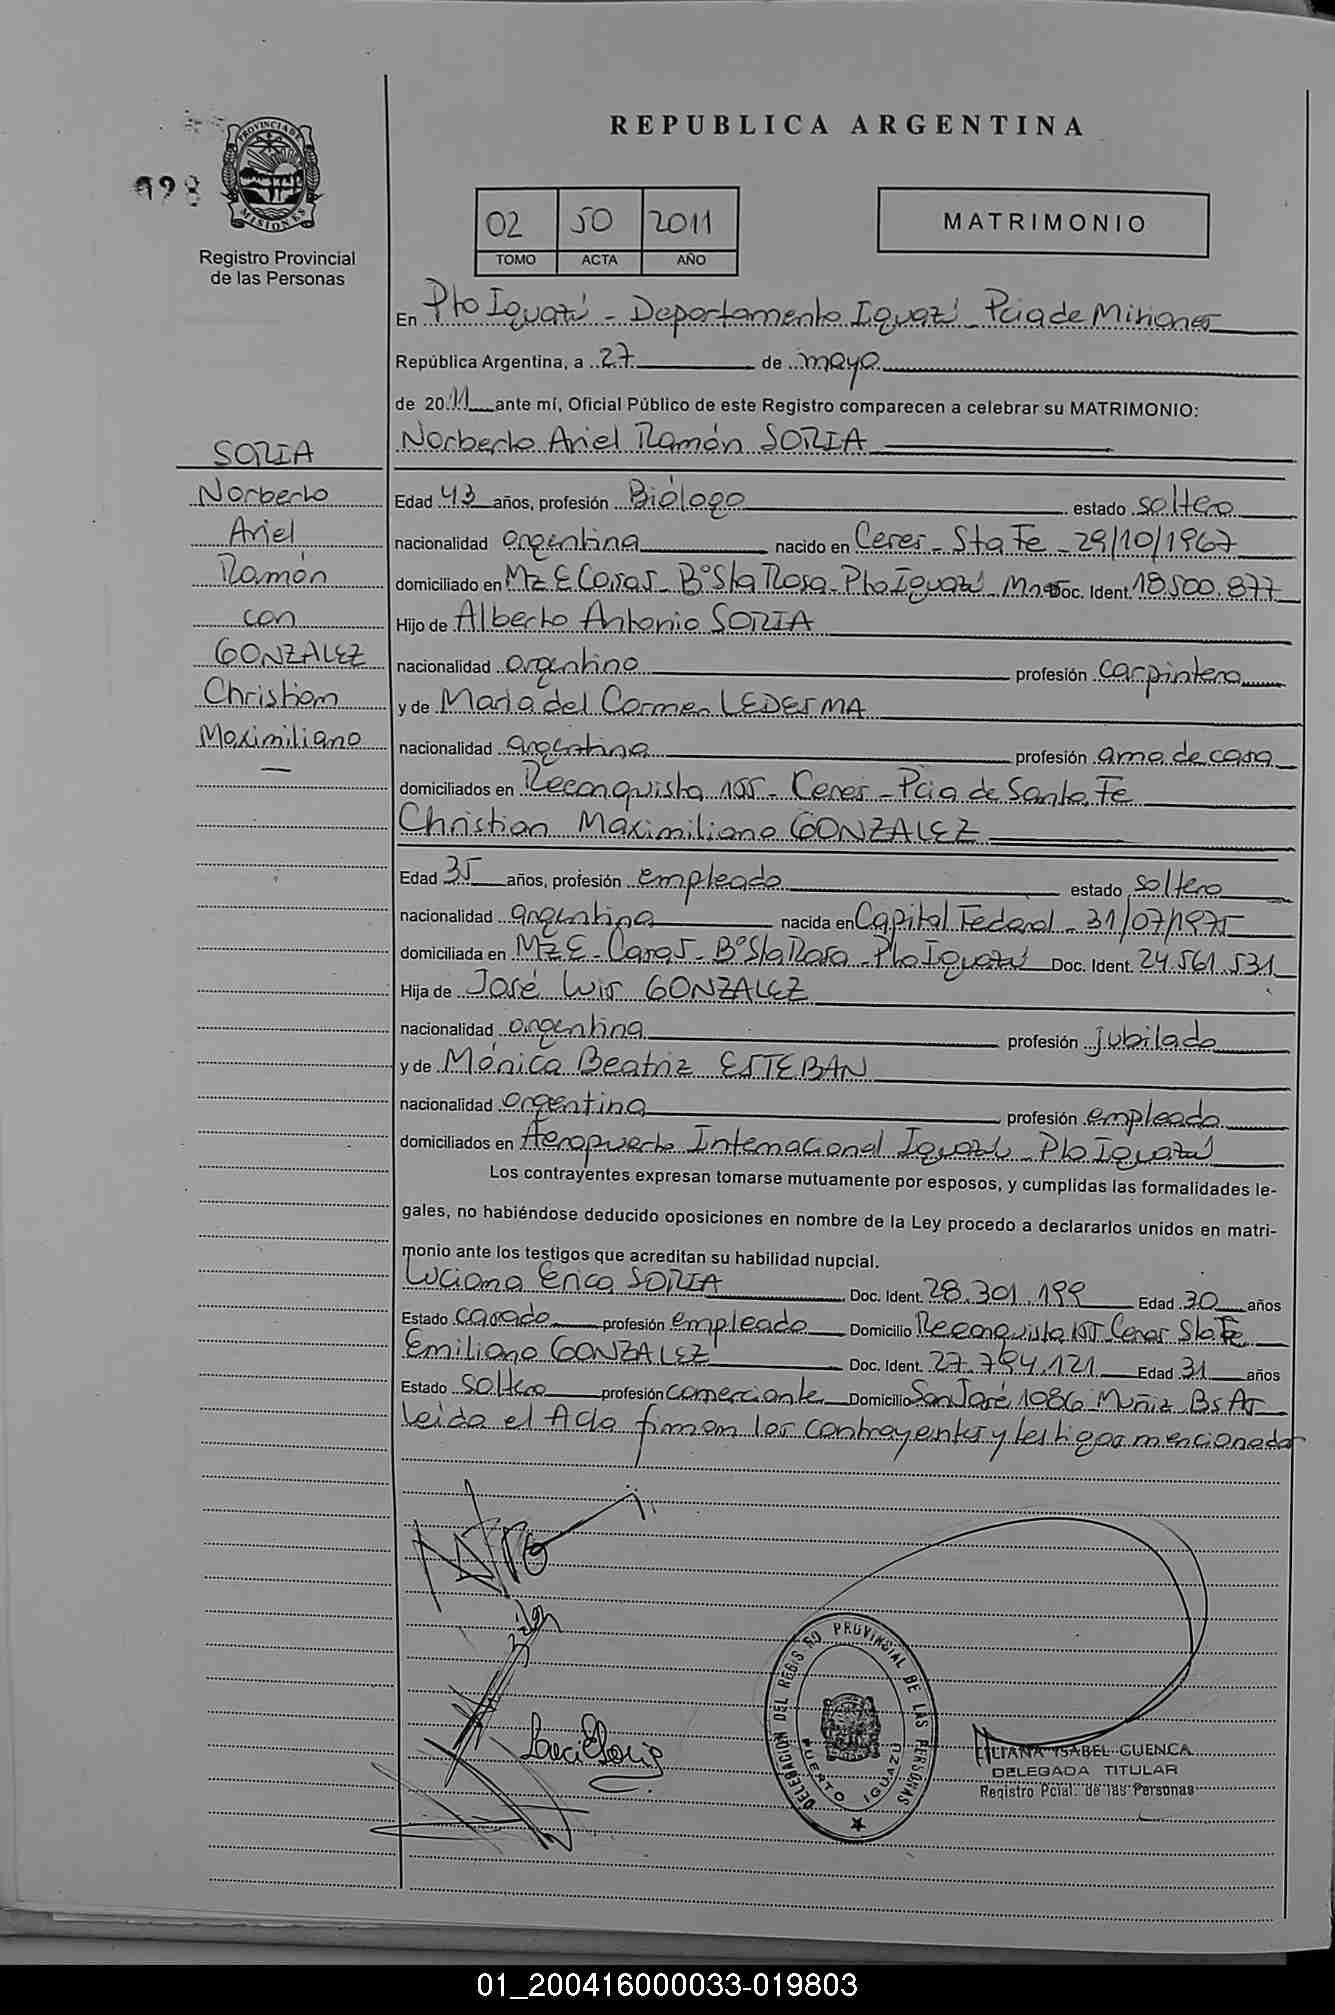 REPUBLICA ARGENTINA
PROVINCIA DE
MISIONES
928
Registro Provincial
de las Personas
02 50 2011
TOMO ACTA AÑO
MATRIMONIO
En Pto Iguazú - Departamento Iguazú - Pcia de Misiones
República Argentina, a 27 de mayo
de 2011 ante mí, Oficial Público de este Registro comparecen a celebrar su MATRIMONIO:
Norberto Ariel Ramón SORIA
SORIA
Norberto
Ariel
Ramón
con
GONZALEZ
Christian
Maximiliano
Edad 43 años, profesión Biólogo estado soltero
nacionalidad argentina nacido en Ceres - Sta Fe - 29/10/1967
domiciliado en Mz E Casa 5 - B° Sta Rosa - Pto Iguazú - Mnes Doc. Ident. 18.500.877
Hijo de Alberto Antonio SORIA
nacionalidad argentino profesión carpintero
y de María del Carmen LEDESMA
nacionalidad argentina profesión ama de casa
domiciliados en Reconquista 155 - Ceres - Pcia de Santa Fe
Christian Maximiliano GONZALEZ
Edad 35 años, profesión empleado estado soltero
nacionalidad argentina nacida en Capital Federal - 31/07/1975
domiciliada en Mz E - Casa 5 - B° Sta Rosa - Pto Iguazú Doc. Ident. 24.561.531
Hija de José Luis GONZALEZ
nacionalidad argentina profesión jubilado
y de Mónica Beatriz ESTEBAN
nacionalidad argentina profesión empleada
domiciliados en Aeropuerto Internacional Iguazú - Pto Iguazú
Los contrayentes expresan tomarse mutuamente por esposos, y cumplidas las formalidades le-
gales, no habiéndose deducido oposiciones en nombre de la Ley procedo a declararlos unidos en matri-
monio ante los testigos que acreditan su habilidad nupcial.
Luciana Erica SORIA Doc. Ident. 28.301.199 Edad 30 años
Estado casada profesión empleada Domicilio Reconquista 155 Ceres Sta Fe
Emiliano GONZALEZ Doc. Ident. 27.794.121 Edad 31 años
Estado soltero profesión comerciante Domicilio San José 1086 Muñiz Bs As
Leida el Acta firman los contrayentes y testigos mencionados
DELEGACION DEL REGISTRO PROVINCIAL DE LAS PERSONAS
PUERTO IGUAZU
LILIANA YSABEL CUENCA
DELEGADA TITULAR
Registro Pcial. de las Personas
01_200416000033-019803